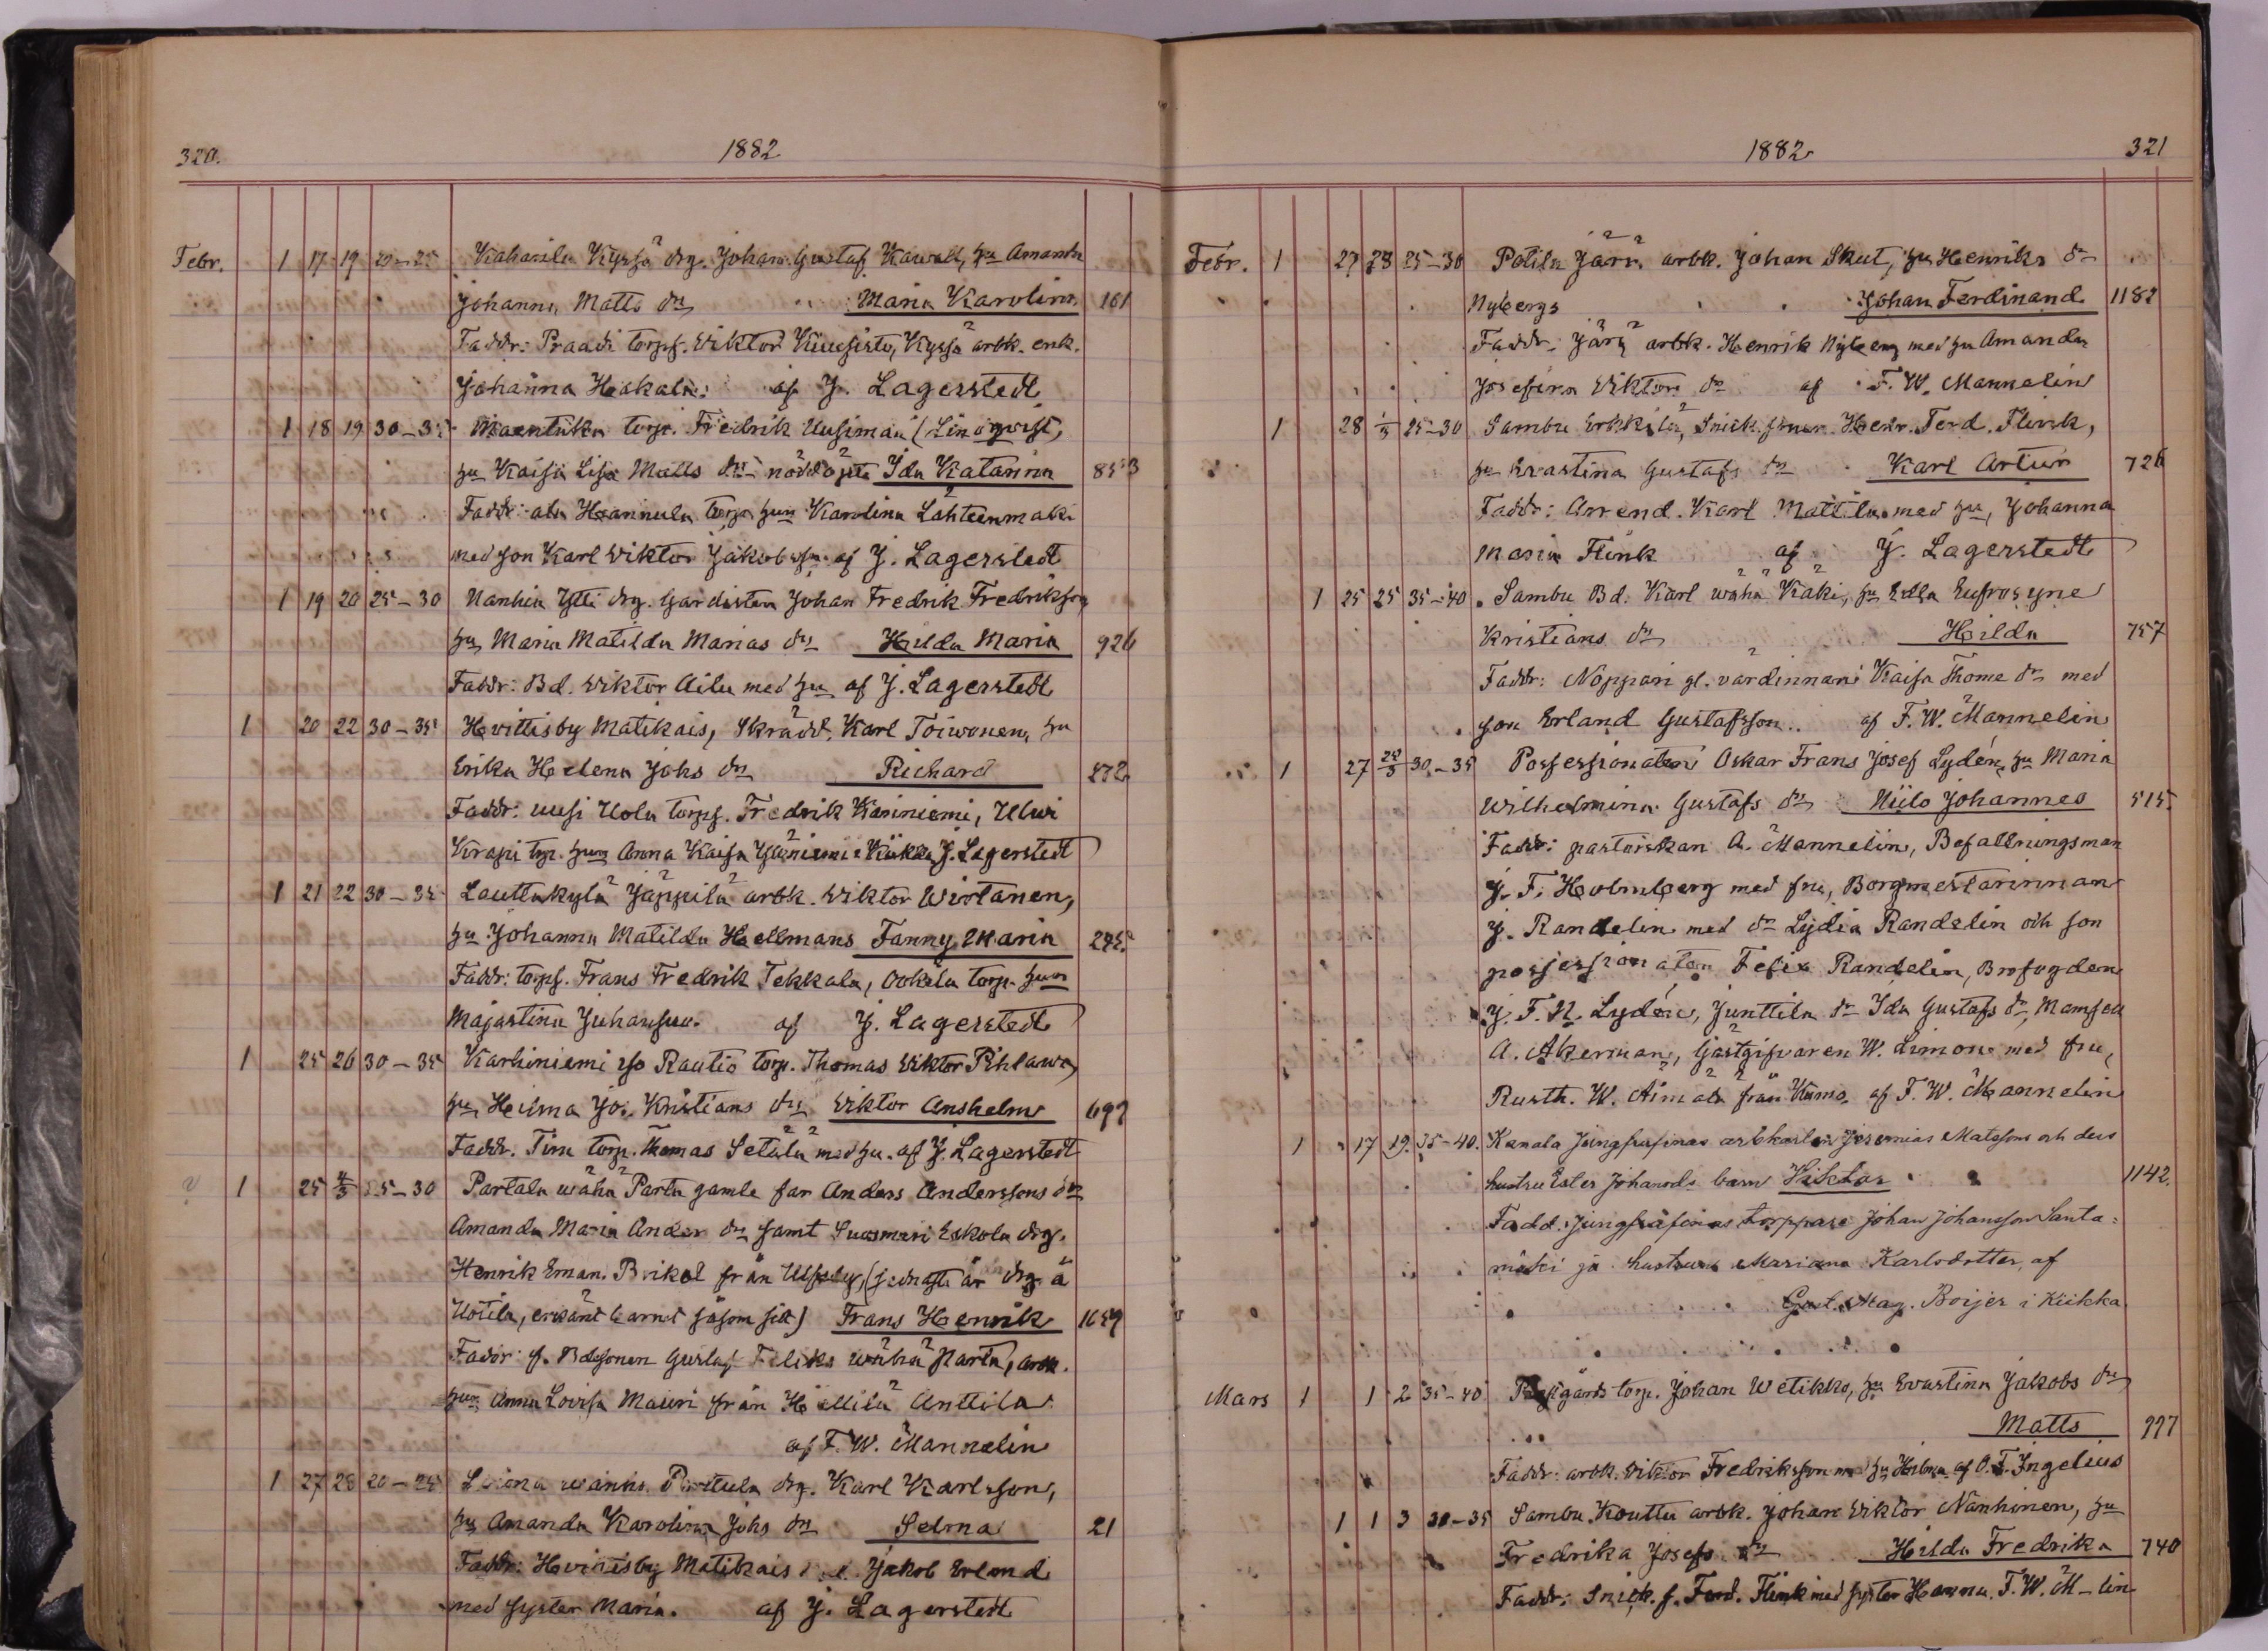 320. 1882
Febr. 1 17 19 20-25 Kyrsä drg. Johan Gustaf Kawall, hu Amanda
Johanna Matts dr Maria Karolina 161
Faddr: Praadi torpf. Viktor Kuusisto, Kyrsä arbk. enk.
Johanna Hakala. af J. Lagerstedt
1 18 19 30-35 torp. Fredrik Uusimäki (Lindqvist,
hu Kaisa Lisa Matts dr nöddöpta Ida Katarina 853
Faddr: ala Hannula torp. hun Karolina Lähteenmäki
med son Karl Viktor Jakobsson af J. Lagerstedt
1 19 20 25-30 Nanhia Ylli drg. Gardisten Johan Fredrik Fredriksson
hu Maria Matilda Marias dr Hilda Maria 926
Faddr: Bd. Viktor Aila med hu af J. Lagerstedt
1 20 22 30-35 Hvittisby Matikais, Skrädd. Karl Toiwonen, hu
Erika Helena Johs dr Richard 272
Faddr: uusi Uola torpf. Fredrik Kariniemi, Ulwi
Krapi trp. hun Anna Kaisa J. Lagerstedt
1 21 22 30-35 Lauttakylä Jäppilä arbk. Viktor Wirtanen,
hu Johanna Matilda Hellmans Fanny Maria 245
Faddr: torpf. Frans Fredrik Tekkala, torp. hun
Majastina Juhansuu. af J. Lagerstedt
1 25 26 30-35 Karhiniemi iso Rautio torp. Thomas Viktor Pihlawa,
hu Hilma Jos. Kristians dr Viktor Anshelm 697
Faddr. Timi torp. Thomas Setälä med hu. af J. Lagerstedt
1 25 4/3 25-30 Partala wähä Partu gamle far Anders Anderssons dr
Amanda Maria Anders dr samt Suosmeri Eskola drg.
Henrik Eman. Brikel från Ulfsby, (jednaste år drg. å
Uotila, erkänt barnet såsom sitt) Frans Henrik 1659
Faddr: f. Bdssonen Gustaf Feliks wähä Partu, arbk.
hun Anna Lovisa Mauri från Hällilä Anttila
af F. W. Mannelin
1 27 28 20-25 wanha drg. Karl Karlsson,
hu Amanda Karolina Johs dr Selma 21
Faddr: Hvittisby Matikais Jakob Erland
med syster Maria. af J. Lagerstedt
1882 321
Febr. 1 27 28 25-30 Potila Järä arbk. Johan Skut, hu Henriks dr
Nybergs Johan Ferdinand 1182
Faddr: Järä arbk. Henrik Nyberg med hu Amanda
Josefina Viktors dr af F. W. Mannelin
1 28 1/3 25-30 Sambu Erkkilä, Snick. Henr. Ferd. Flink,
hu Evastina Gustafs dr Karl Artur 726
Faddr: Arrend. Karl Mattila med hu, Johanna
Maria Flink af J. Lagerstedt
1 25 25 35-40 Sambu Bd. Karl wähä Käki, hu Edla Eufrosyne
Kristians dr Hilda 757
Faddr: Noppari gl. värdinnan Kaisa Thome dr med
son Erland Gustafsson. af F. W. Mannelin
1 27 25/3 30-35 Possessionaten Oskar Frans Josef Lydén, hu Maria
Wilhelmina Gustafs dr Niilo Johannes 515
Faddr: pastorskan A. Mannelin, Befallningsman
J. F. Holmberg med fru, Borgmestarinnan
J. Randelin med dr Lydia Randelin och son
possessionaten Felix Randelin, Brofogden
J. F. N. Lydén, Junttila dr Ida Gustafs dr, Mamsell
A. Åkerman, Gästgifvaren W. Limon med fru,
Rusth. W. Äimälä från Kumo. af F. W. Mannelin
1 17 19 35-40. Kanala Jungfrufinas arbkarlen Jeremias Matssons och dess
hustru Ester Johansds barn Viktor 1142.
Fadd: Jungfrufinas torppare Johan Johansson Santa-
mäki jä hustrun Mariana Karlsdotter, af
Gust. Mag. Boijer i Kiikka
Mars 1 1 2 35-40 torp. Johan Wetikko, hu Evastina Jakobs dr
Matts 997
Faddr: arbk. Viktor Fredriksson med hu Hilma af O. F. Ingelius
1 1 3 30-35 Sambu Kouttu arbk. Johan Viktor Nanhinen, hu
Fredrika Josefs dr Hilda Fredrika 740
Faddr: Snick. f. Ferd. Flink med syster Hanna. F. W. M-lin